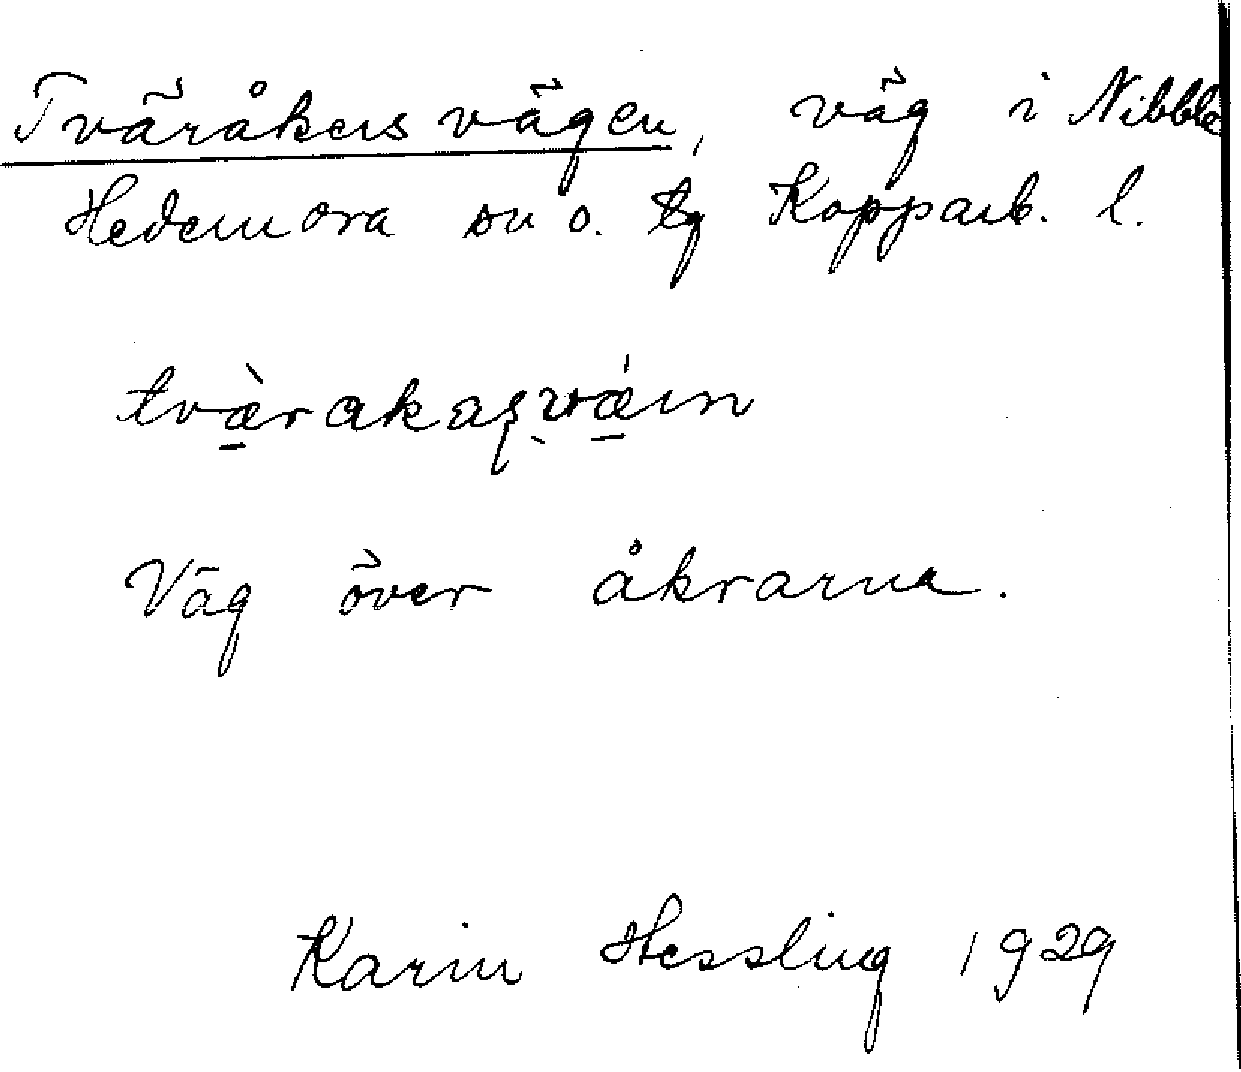 Tväråkersvägen, väg i Nibble
Hedemora sn o. tg Kopparb. l.
tvæ̀rakaʂvǽın
Väg över åkrarna.
Karin Hessling 1929